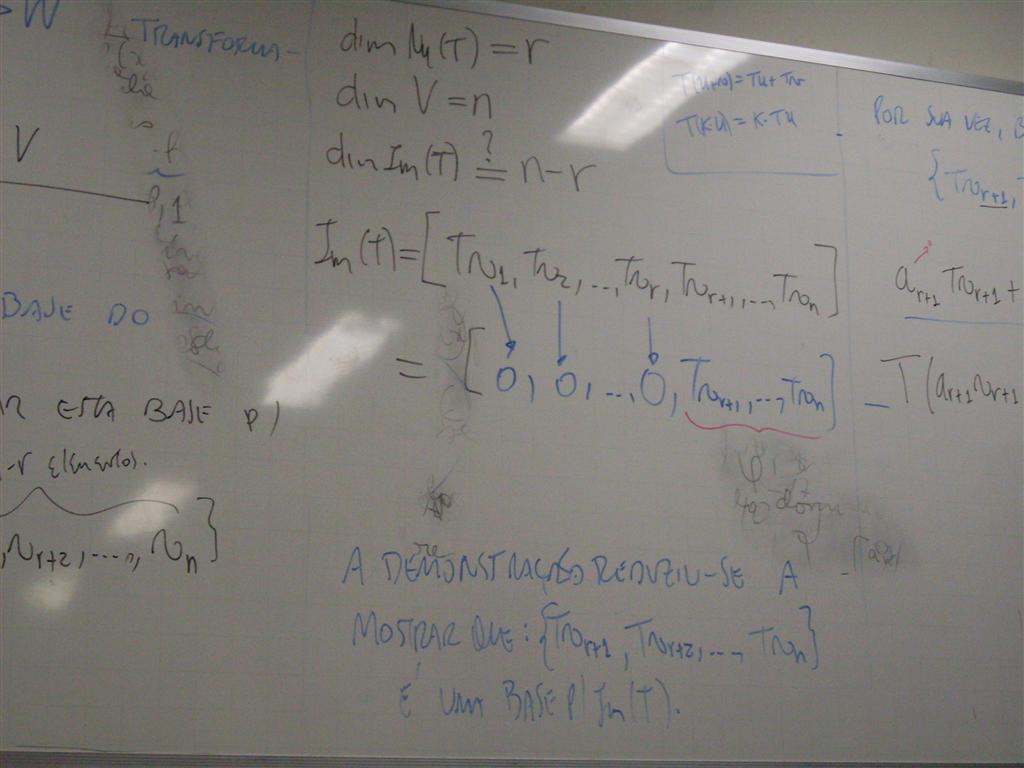 W
TRANSFORMA-
V
BASE DO
AR ESTA BASE P/
-r elementos.
, v_{r+2}, ...., v_n}
dim Nu(T) = r
dim V = n
dim Im(T) ≟ n-r
Im(T) = [Tv_1, Tv_2, ..., Tv_r, Tv_{r+1}, ..., Tv_n]
= [0, 0, ... 0, Tv_{r+1}, ..., Tv_n]
A DEMONSTRAÇÃO REDUZIU-SE A
MOSTRAR QUE: {Tv_{r+1}, Tv_{r+2}, ..., Tv_n}
É UMA BASE P/ Im(T).
T(u+v) = Tu + Tv
T(K·U) = K·TU
POR SUA VEZ, B
{Tv_{r+1}, T
a_{r+1} Tv_{r+1} +
T(a_{r+1} v_{r+1}